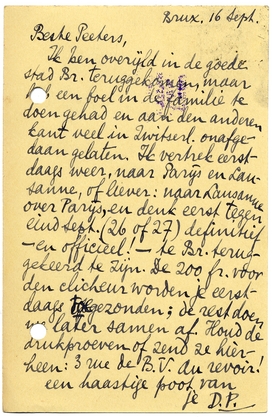 Brux. 16 Sept.
Beste Peeters,
Ik ben overijld in de goede
stad Br. teruggekomen, maar
heb een boel in de familie te
doen gehad en aan den anderen
kant veel in Zwitserl. onafge-
daan gelaten. Ik vertrek eerst-
daags weer, naar Parijs en Lau-
sanne, of liever: naar Lausanne
over Parijs, en denk eerst tegen
eind sept. (26 of 27) definitief
– en officieel! – te Br. terug-
gekeerd te zijn. De 200 fr. voor
den clicheur worden je eerst-
daags toegezonden; de rest doen
we later samen af. Houd de
drukproeven of zend ze hier-
heen: 3 rue de B.V. Au revoir!
een haastige poot van
je D.P.